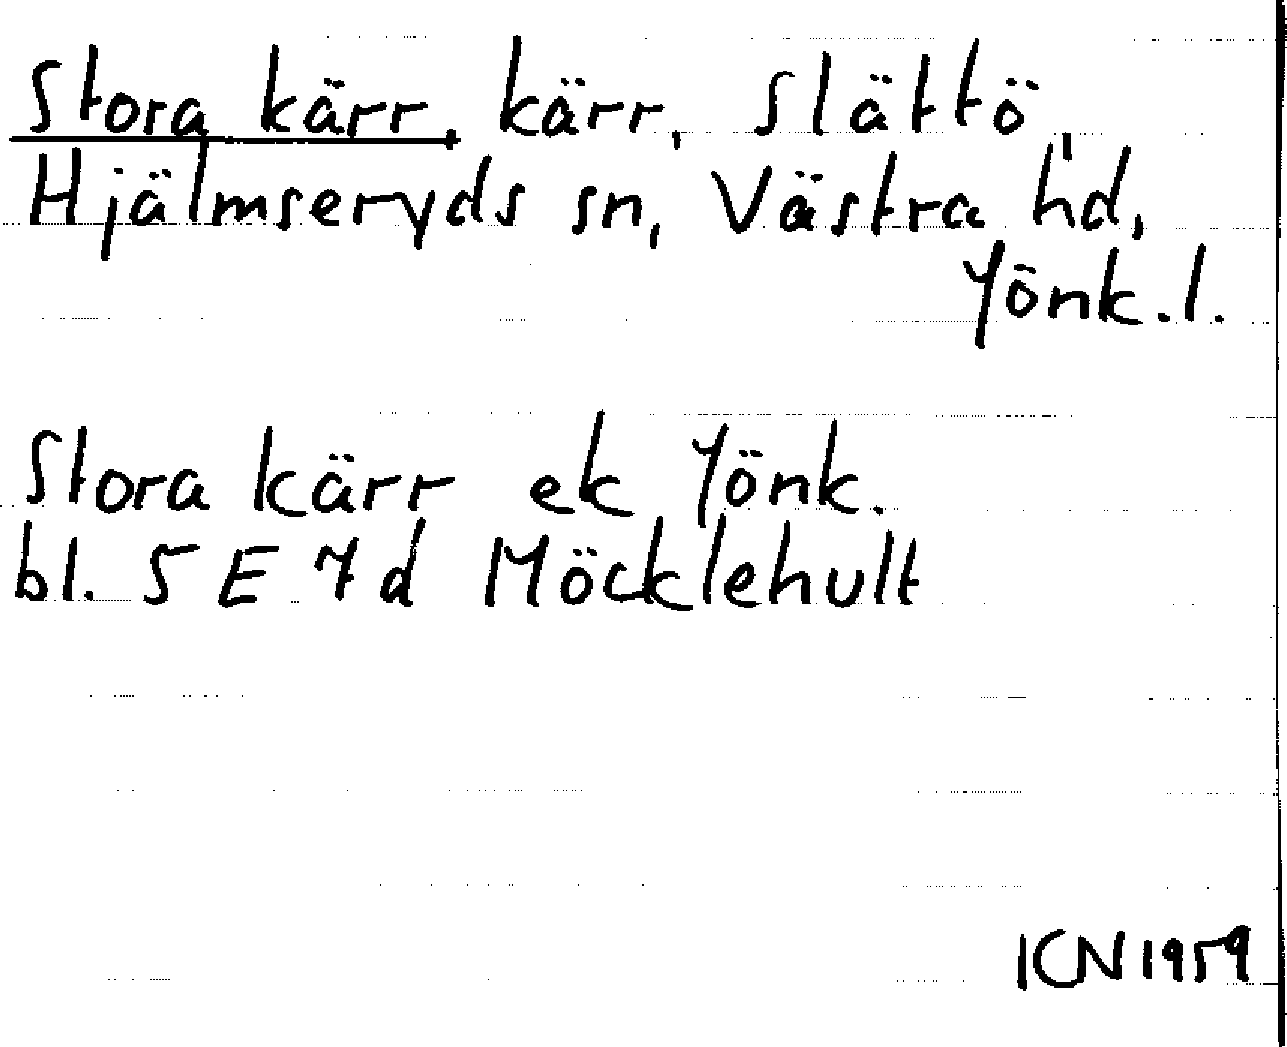 Stora kärr, kärr, Slättö,
Hjälmseryds sn, Västra hd,
Jönk.l.
Stora kärr ek Jönk.
bl. 5 E 7 d Möcklehult
KN 1959